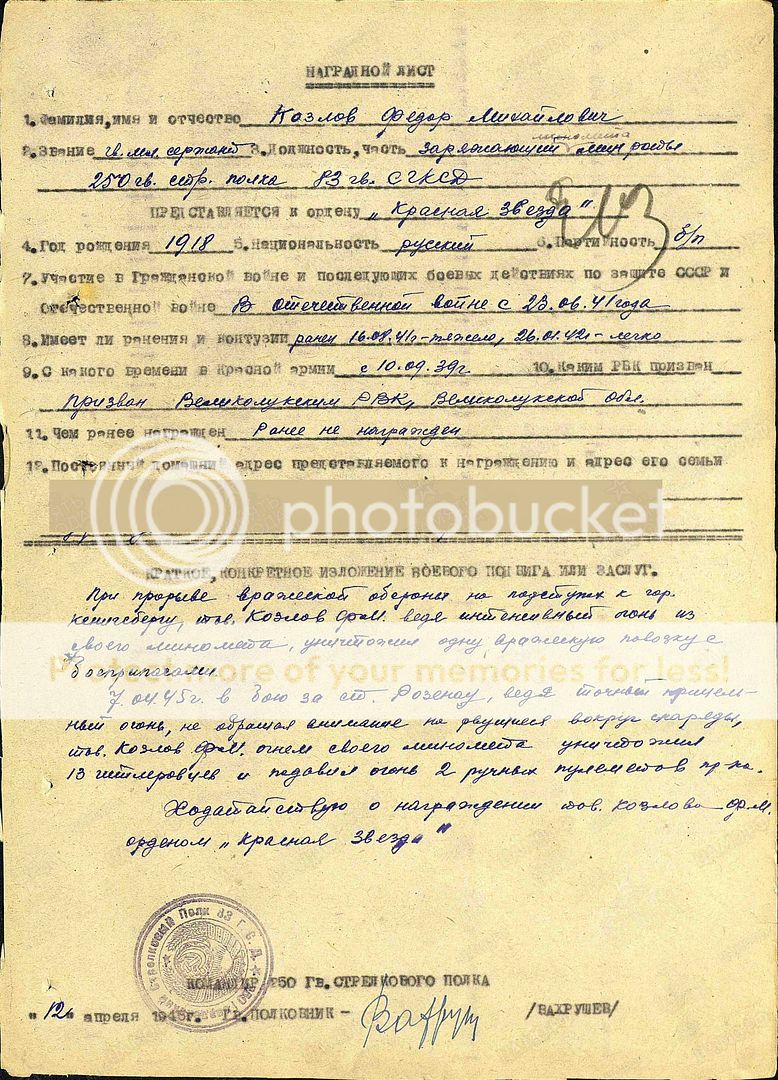 НАГРАДНОЙ ЛИСТ
1. Фамилия, имя и отчество Козлов Федор Михайлович
миномета
2. Звание гв. мл. сержант 3. Должность, часть заряжающий минроты
250 гв. стр. полка 83 гв. СГКСД
ПРЕДСТАВЛЯЕТСЯ к ордену „Красная Звезда"
4. Год рождения 1918 5. Национальность русский 6. Партийность б/п
7. Участие в Гражданской войне и последующих боевых действиях по защите СССР и
Отечественной войне В отечественной войне с 23.06.41 года
8. Имеет ли ранения и контузии ранен 16.08.41г - тяжело, 26.01.42г - легко
9. С какого времени в Красной армии с 10.09.39г. 10. Каким РВК призван
призван Великолукским РВК, Великолукской обл.
11. Чем ранее награжден Ранее не награжден
12. Постоянный домашний адрес представляемого к награждению и адрес его семьи
photobucket
КРАТКОЕ, КОНКРЕТНОЕ ИЗЛОЖЕНИЕ БОЕВОГО ПОДВИГА ИЛИ ЗАСЛУГ.
При прорыве вражеской обороны на подступах к гор.
Кенигсбергу, тов. Козлов Ф.М. ведя интенсивный огонь из
своего миномета, уничтожил одну вражескую повозку с
боеприпасами.
Protect more of your memories for less!
7.04.45г. в бою за ст. Розенау, ведя точный прицель-
ный огонь, не обращая внимание на рвущиеся вокруг снаряды,
тов. Козлов Ф.М. огнем своего миномета уничтожил
13 гитлеровцев и подавил огонь 2 ручных пулеметов пр-ка.
Ходатайствую о награждении тов. Козлова Ф.М.
орденом „Красная Звезда"
Стрелковый Полк 83 Г.С.Д.
КОМАНДИР 250 ГВ. СТРЕЛКОВОГО ПОЛКА
"12" апреля 1945г. ГВ. ПОЛКОВНИК - /ВАХРУШЕВ/